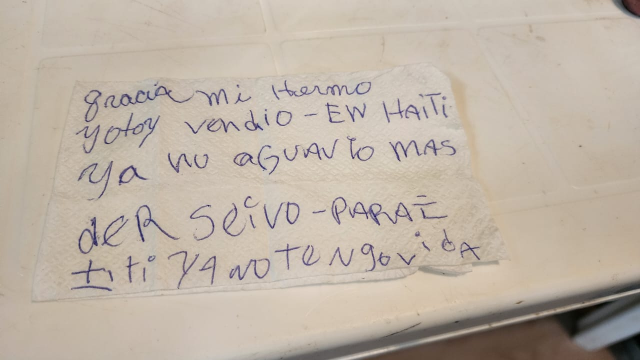 gracia mi Hermo
yotoy vendio - EN HAITI
ya no aguavio mas
der seivo - PARAI
titi ya no tengo vida